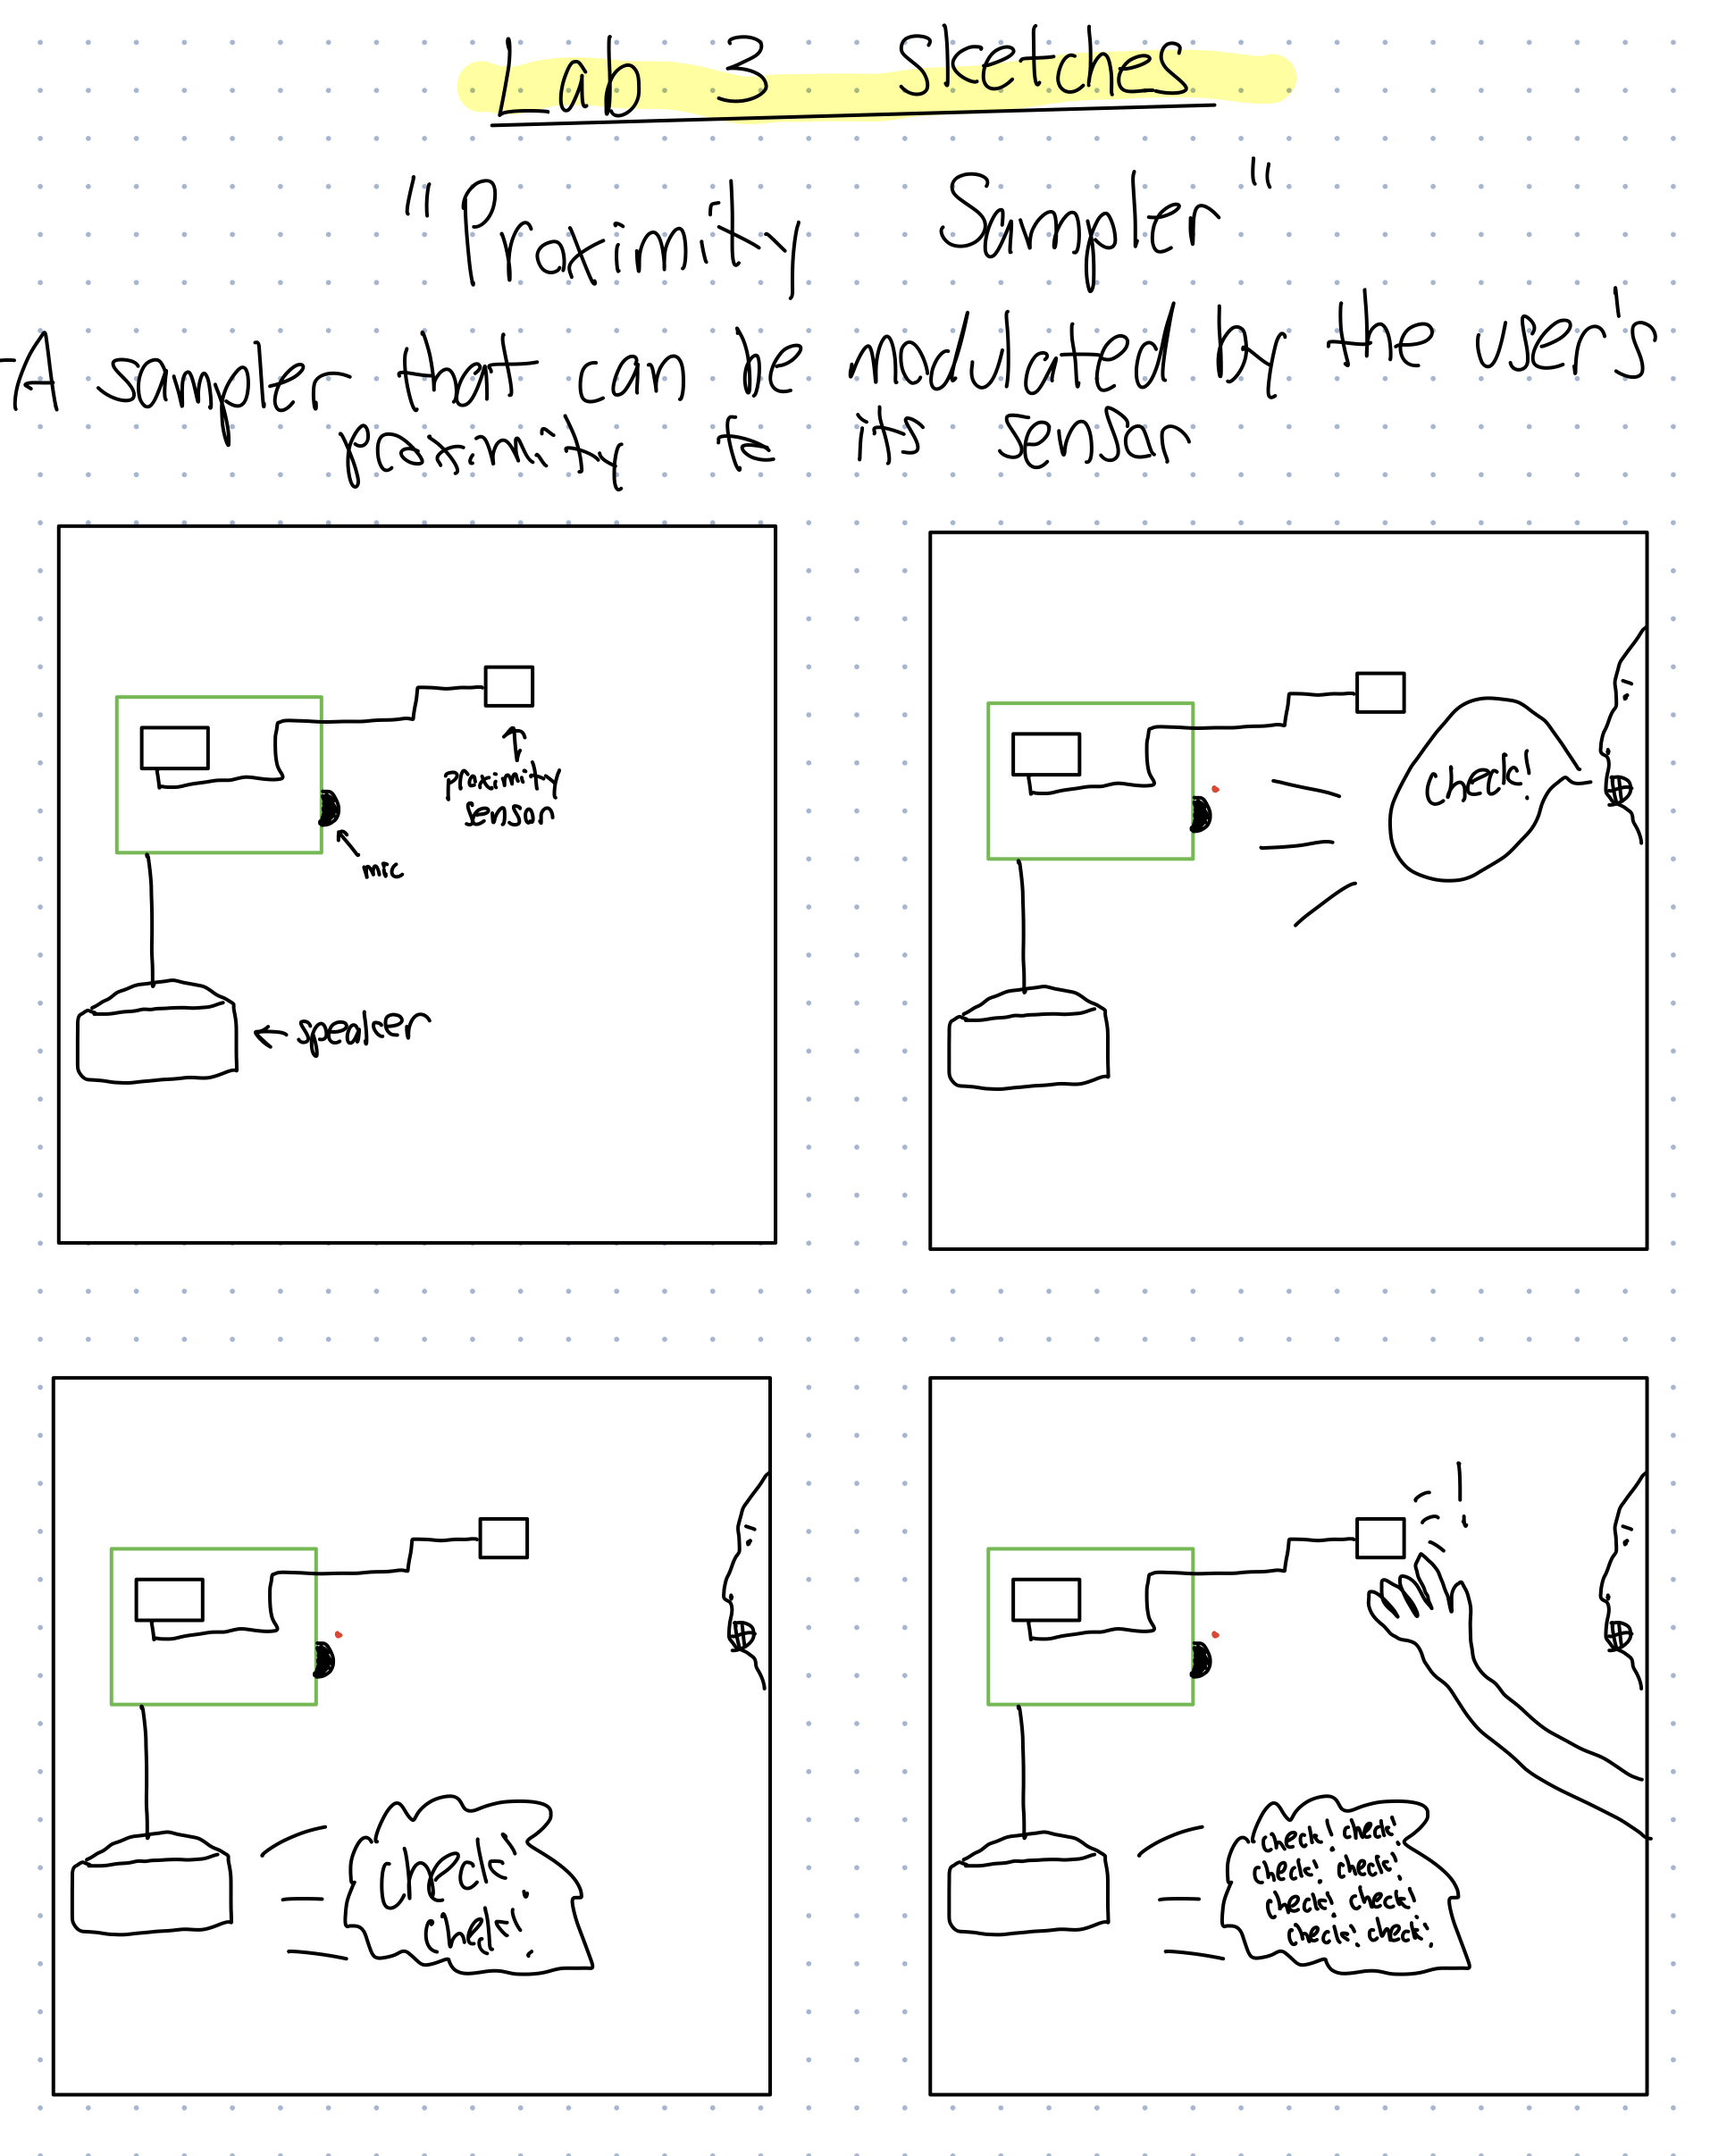 Lab 3 Sketches
"Proximity Sampler"
- A sampler that can be modulated by the user's
proximity to its sensor
proximity
sensor
mic
speaker
check!
check!
check!
check! check!
check! check!
check! check!
check! check!